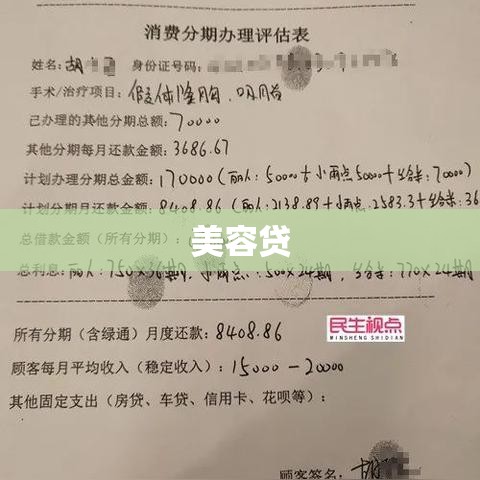 消费分期办理评估表
姓名：胡 身份证号码：
手术/治疗项目：假体隆胸、吸脂
己办理的其他分期总额：70000
其他分期每月还款金额：3686.67
计划办理分期总金额：170000（丽人：50000＋小两点50000＋
计划分期月还款金额：8408.86（丽人：2138.89＋小两点：2583.3＋
美容贷
总借款金额（所有分期）：
总利息：丽人：750×36期，小两点：500×24期，
所有分期（含绿通）月度还款：8408.86
民生视点
MINSHENG SHIDIAN
顾客每月平均收入（稳定收入）：15000－20000
其他固定支出（房贷、车贷、信用卡、花呗等）：
顾客签名：胡